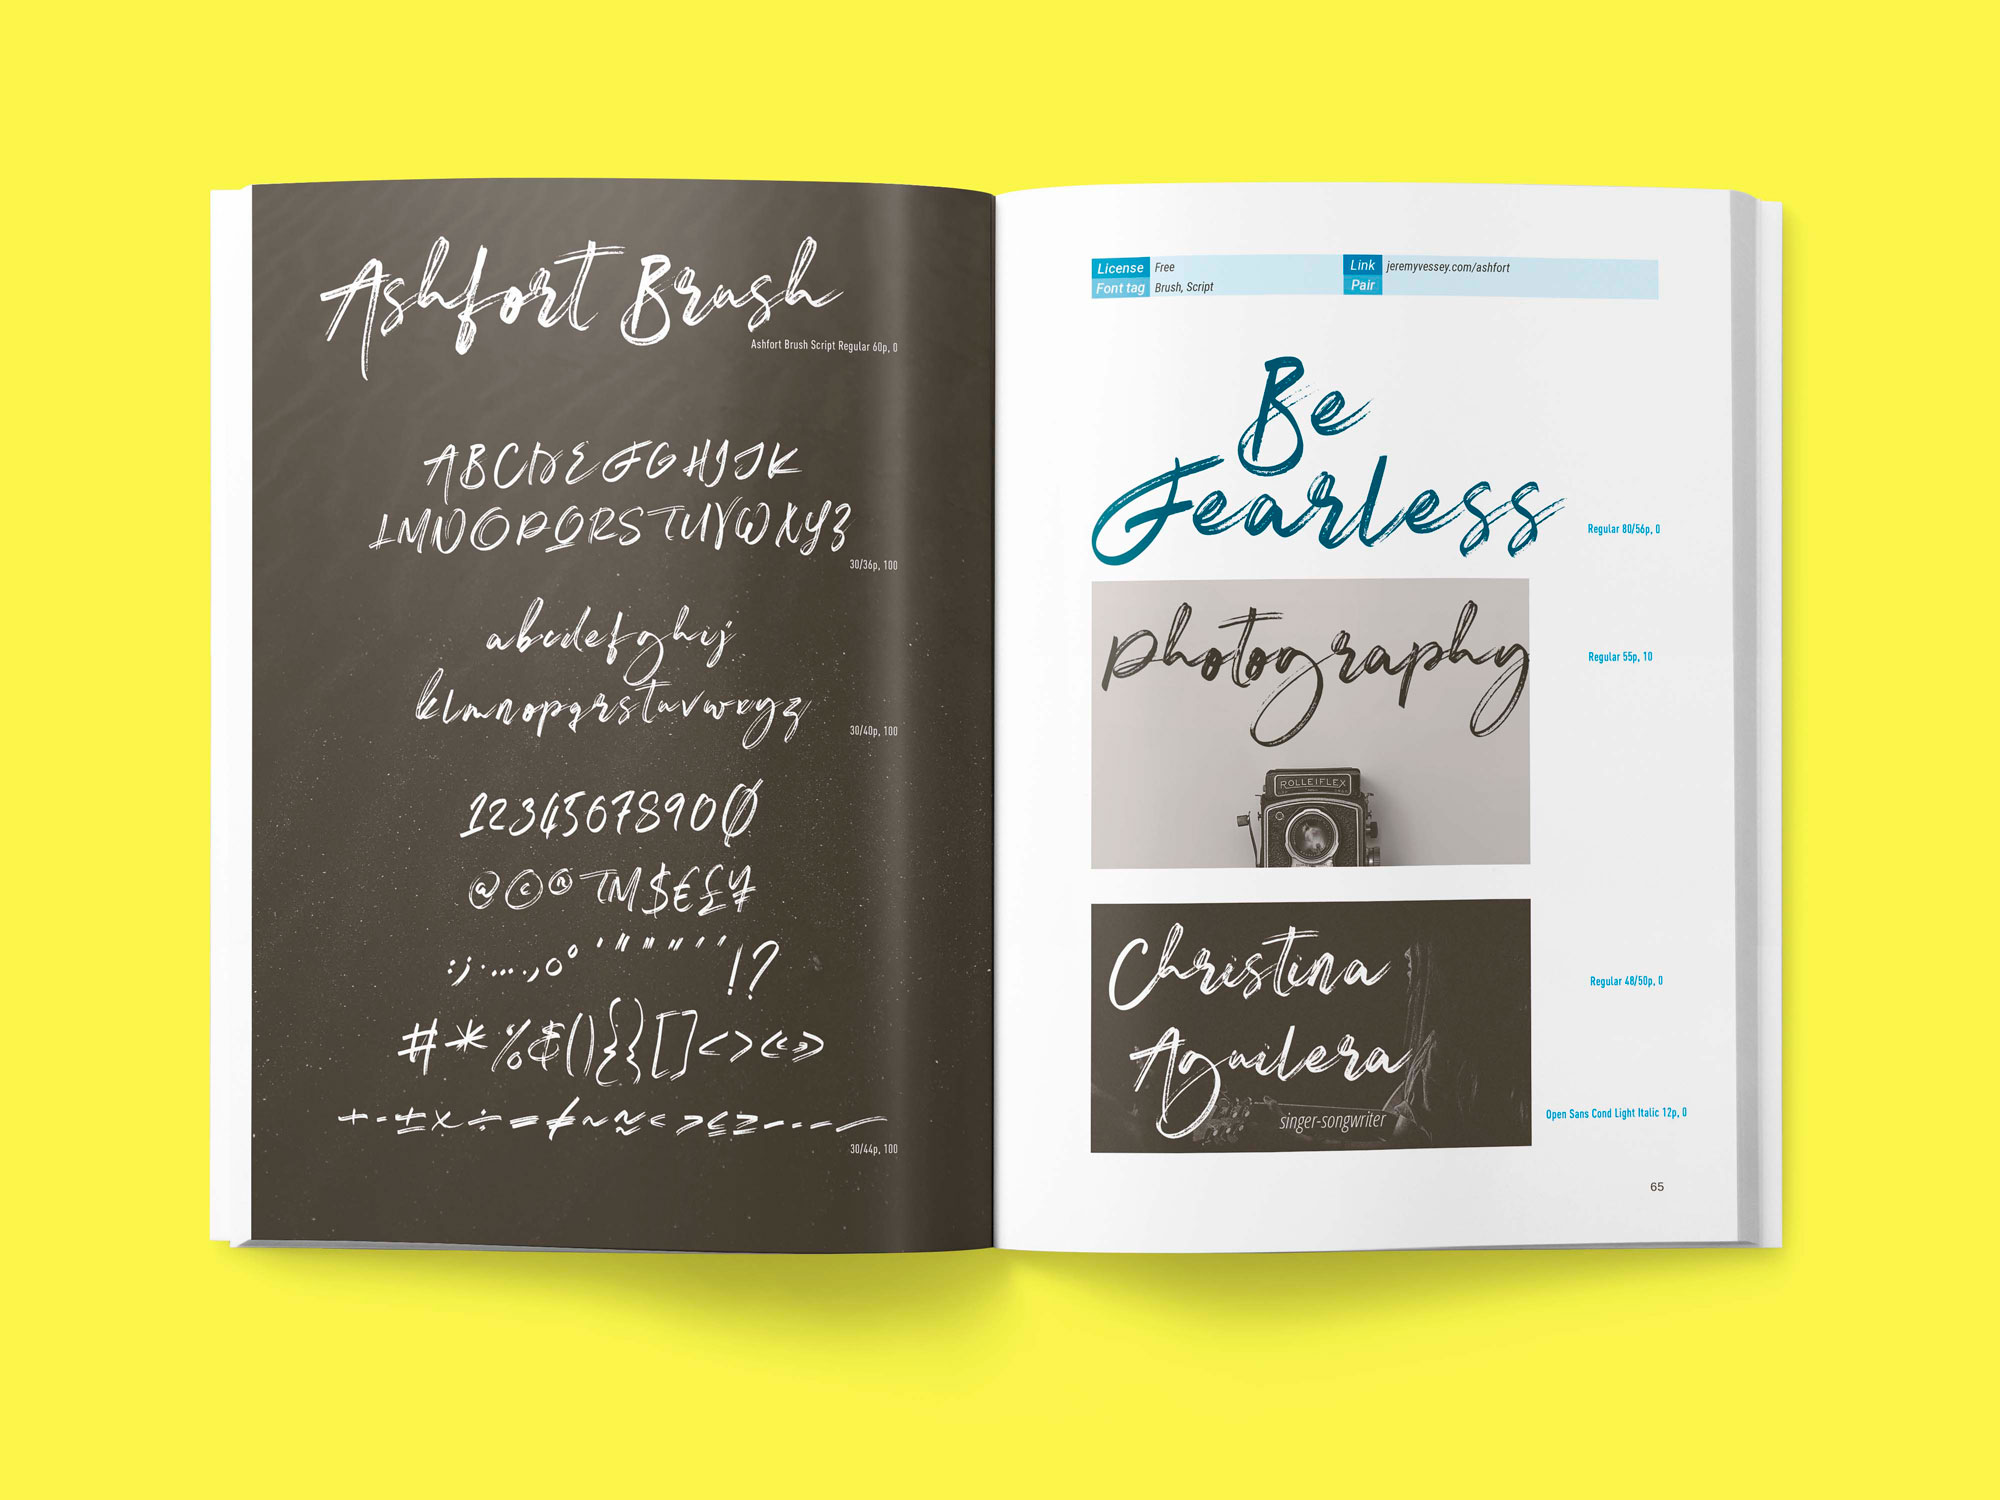 Ashfort Brush
Ashfort Brush Script Regular 60p, 0
ABCDEFGHIJK
LMNOPQRSTUVWXYZ
30/36p, 100
abcdefghij
klmnopqrstuvwxyz
30/40p, 100
12345678900
@©®TM$€£¥
:;·….,
!?
#*%&(){}[]<>«»
+-±×÷=≠~≈<>≤≥-–—_
30/44p, 100
License Free
Font tag Brush, Script
Link jeremyvessey.com/ashfort
Pair
Be
Fearless
Regular 80/56p, 0
Photography
Regular 55p, 10
ROLLEIFLEX
Christina
Regular 48/50p, 0
Aguilera
singer-songwriter
Open Sans Cond Light Italic 12p, 0
65